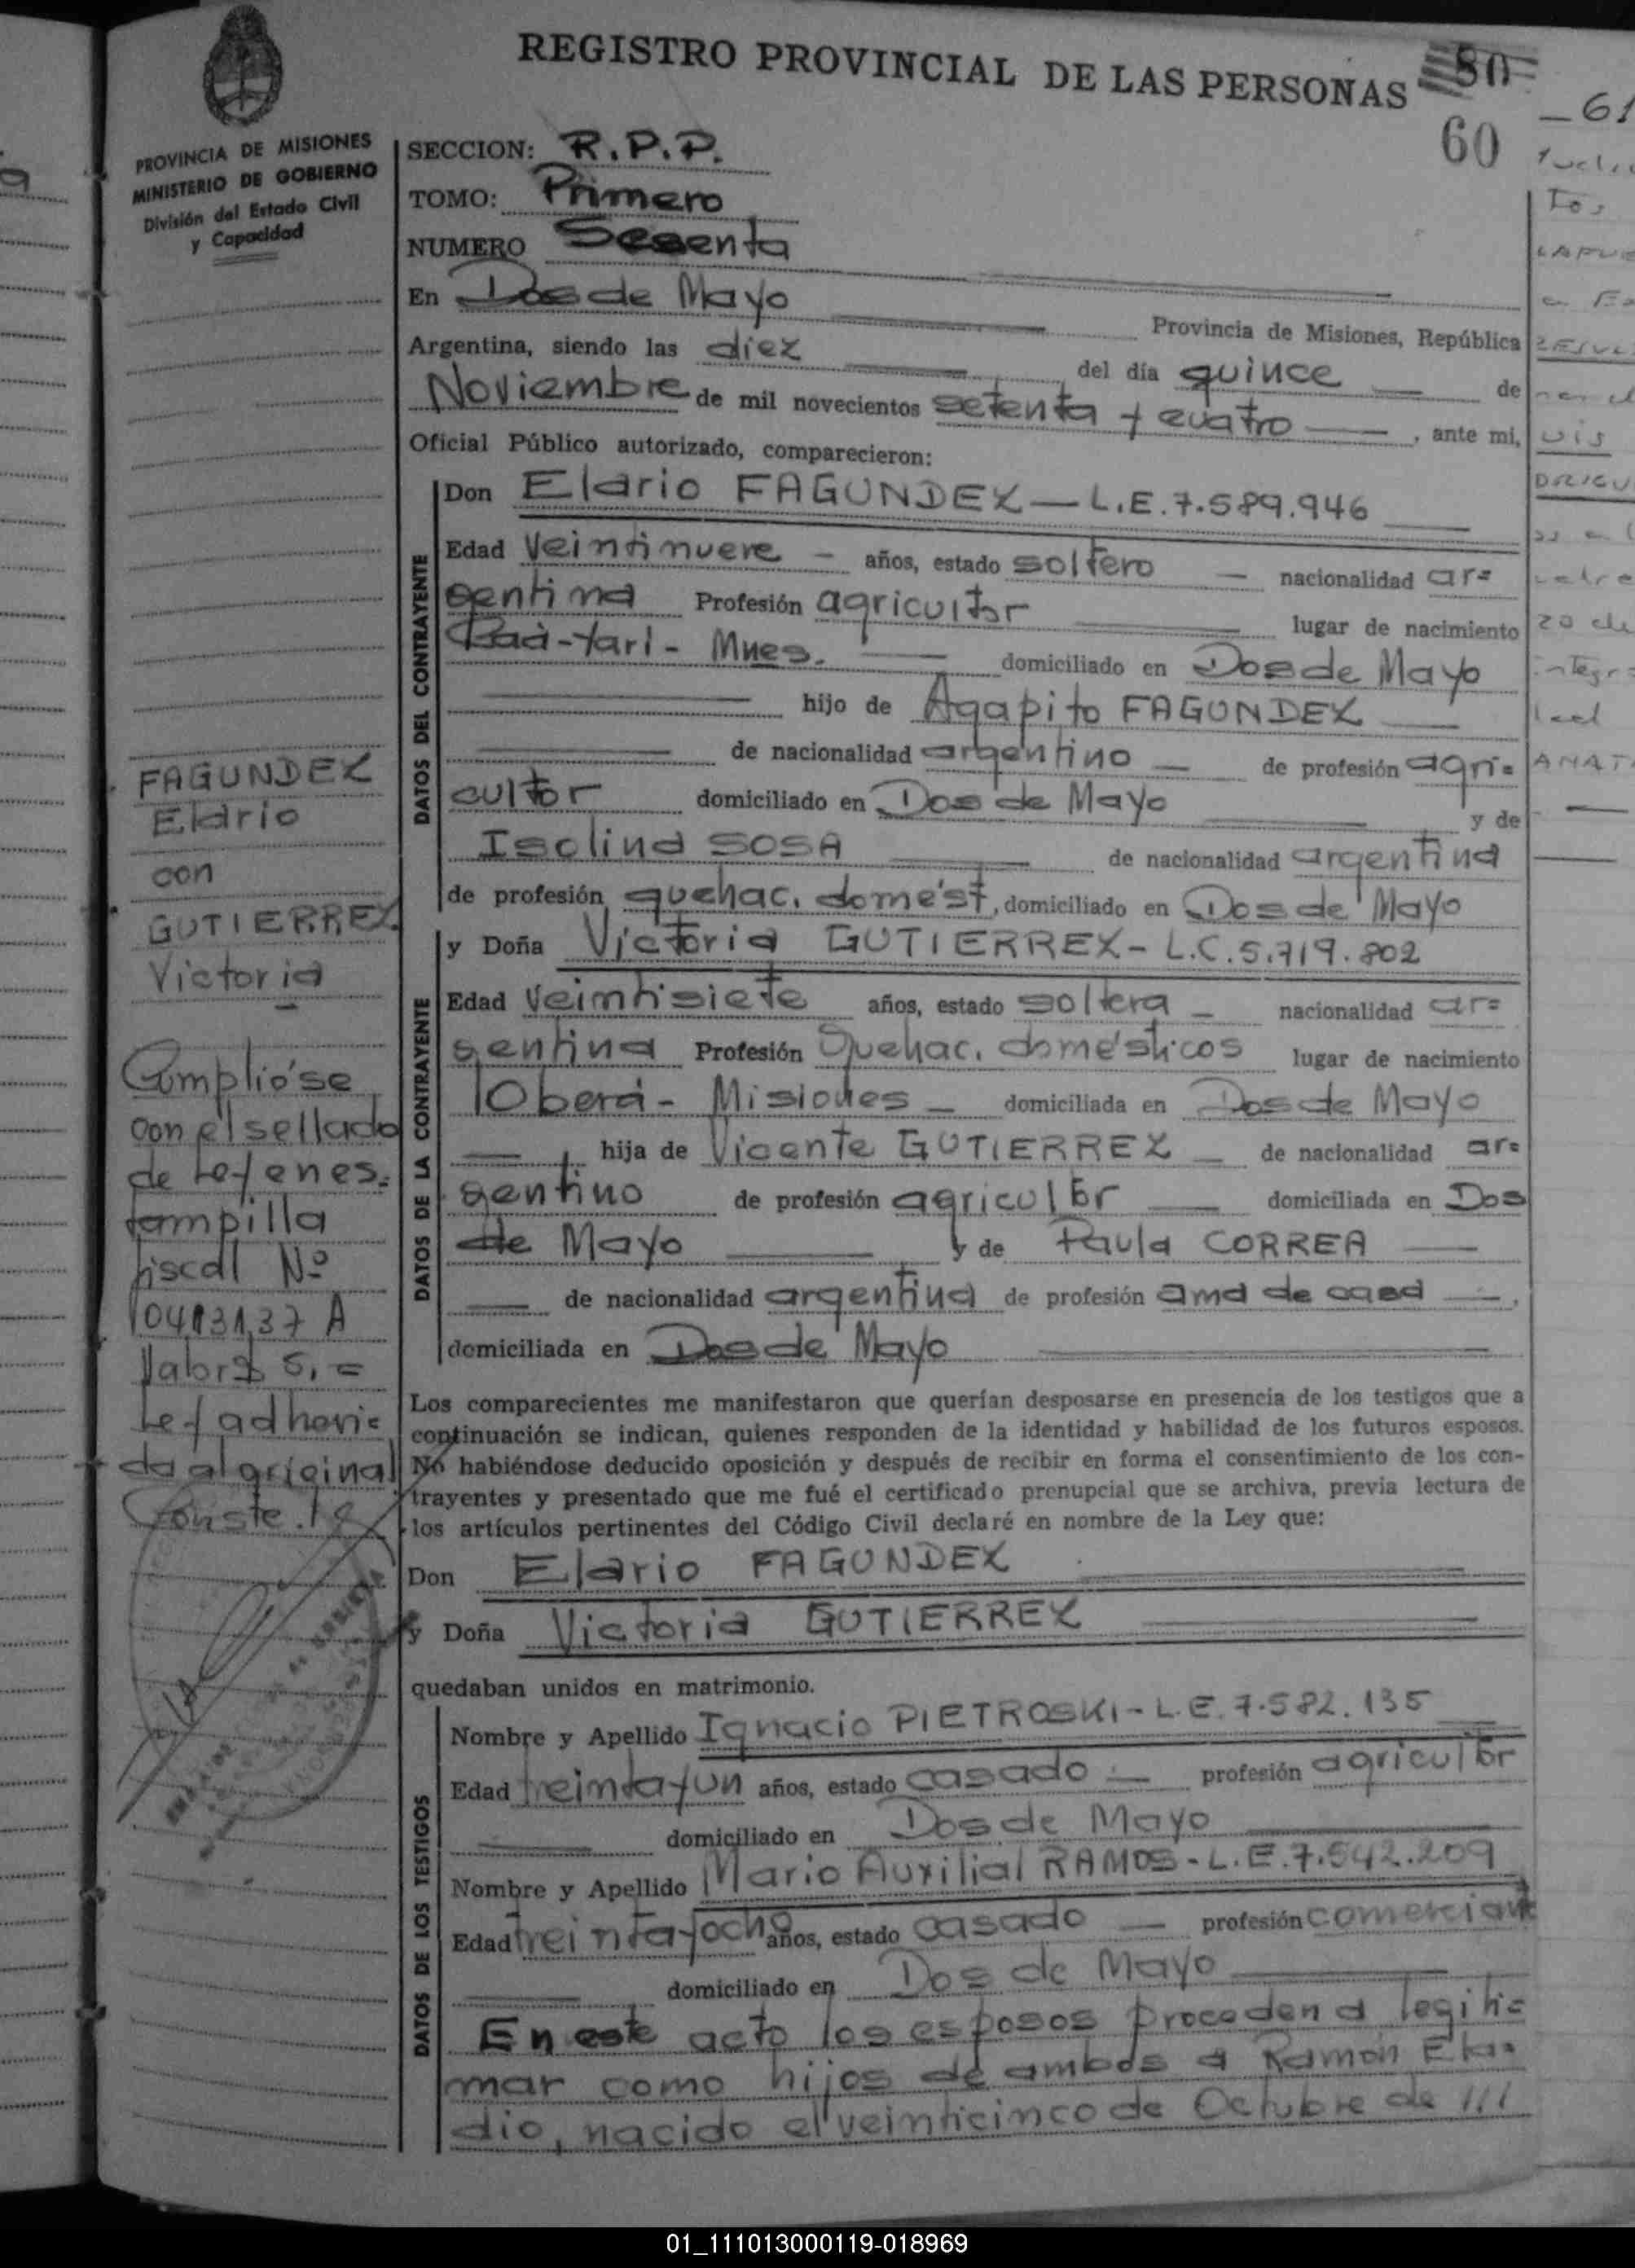 REGISTRO PROVINCIAL DE LAS PERSONAS
80
60
PROVINCIA DE MISIONES
MINISTERIO DE GOBIERNO
División del Estado Civil
y Capacidad
SECCION: R.P.P.
TOMO: Primero
NUMERO Sesenta
En Dos de Mayo Provincia de Misiones, República
Argentina, siendo las diez del día quince de
Noviembre de mil novecientos setenta y cuatro, ante mi,
Oficial Público autorizado, comparecieron:
DATOS DEL CONTRAYENTE
Don Elario FAGUNDEZ — L.E. 7.589.946
Edad Veintinueve — años, estado soltero — nacionalidad ar=
gentina Profesión agricultor lugar de nacimiento
Mnes. domiciliado en Dos de Mayo
hijo de Agapito FAGUNDEZ
de nacionalidad argentino — de profesión agri=
cultor domiciliado en Dos de Mayo y de
Isolina SOSA de nacionalidad argentina
de profesión quehac. domést, domiciliado en Dos de Mayo
DATOS DE LA CONTRAYENTE
y Doña Victoria GUTIERREZ - L.C. 5.719.802
Edad Veintisiete años, estado soltera — nacionalidad ar=
gentina Profesión Quehac. domésticos lugar de nacimiento
Oberá - Misiones — domiciliada en Dos de Mayo
hija de Vicente GUTIERREZ — de nacionalidad ar=
gentino de profesión agricultor domiciliada en Dos
de Mayo y de Paula CORREA
de nacionalidad argentina de profesión ama de casa —,
domiciliada en Dos de Mayo
Los comparecientes me manifestaron que querían desposarse en presencia de los testigos que a
continuación se indican, quienes responden de la identidad y habilidad de los futuros esposos.
No habiéndose deducido oposición y después de recibir en forma el consentimiento de los con-
trayentes y presentado que me fué el certificado prenupcial que se archiva, previa lectura de
los artículos pertinentes del Código Civil declaré en nombre de la Ley que:
Don Elario FAGUNDEZ
y Doña Victoria GUTIERREZ
quedaban unidos en matrimonio.
DATOS DE LOS TESTIGOS
Nombre y Apellido Ignacio PIETROSKI - L.E. 7.582.135
Edad treinta y un años, estado casado — profesión agricultor
domiciliado en Dos de Mayo
Nombre y Apellido Mario Auxilial RAMOS - L.E. 7.542.209
Edad treinta y ocho años, estado casado — profesión comerciante
domiciliado en Dos de Mayo
En este acto los esposos proceden a legiti=
mar como hijos de ambos a Ramón Ela=
dio, nacido el veinticinco de Octubre de ///
FAGUNDEZ
Elario
con
GUTIERREZ
Victoria
Cumplióse
con el sellado
de Ley en es=
tampilla
fiscal Nº
0413137 A
Valor $ 5,=
Ley adheri=
da al original
Conste.
01_111013000119-018969